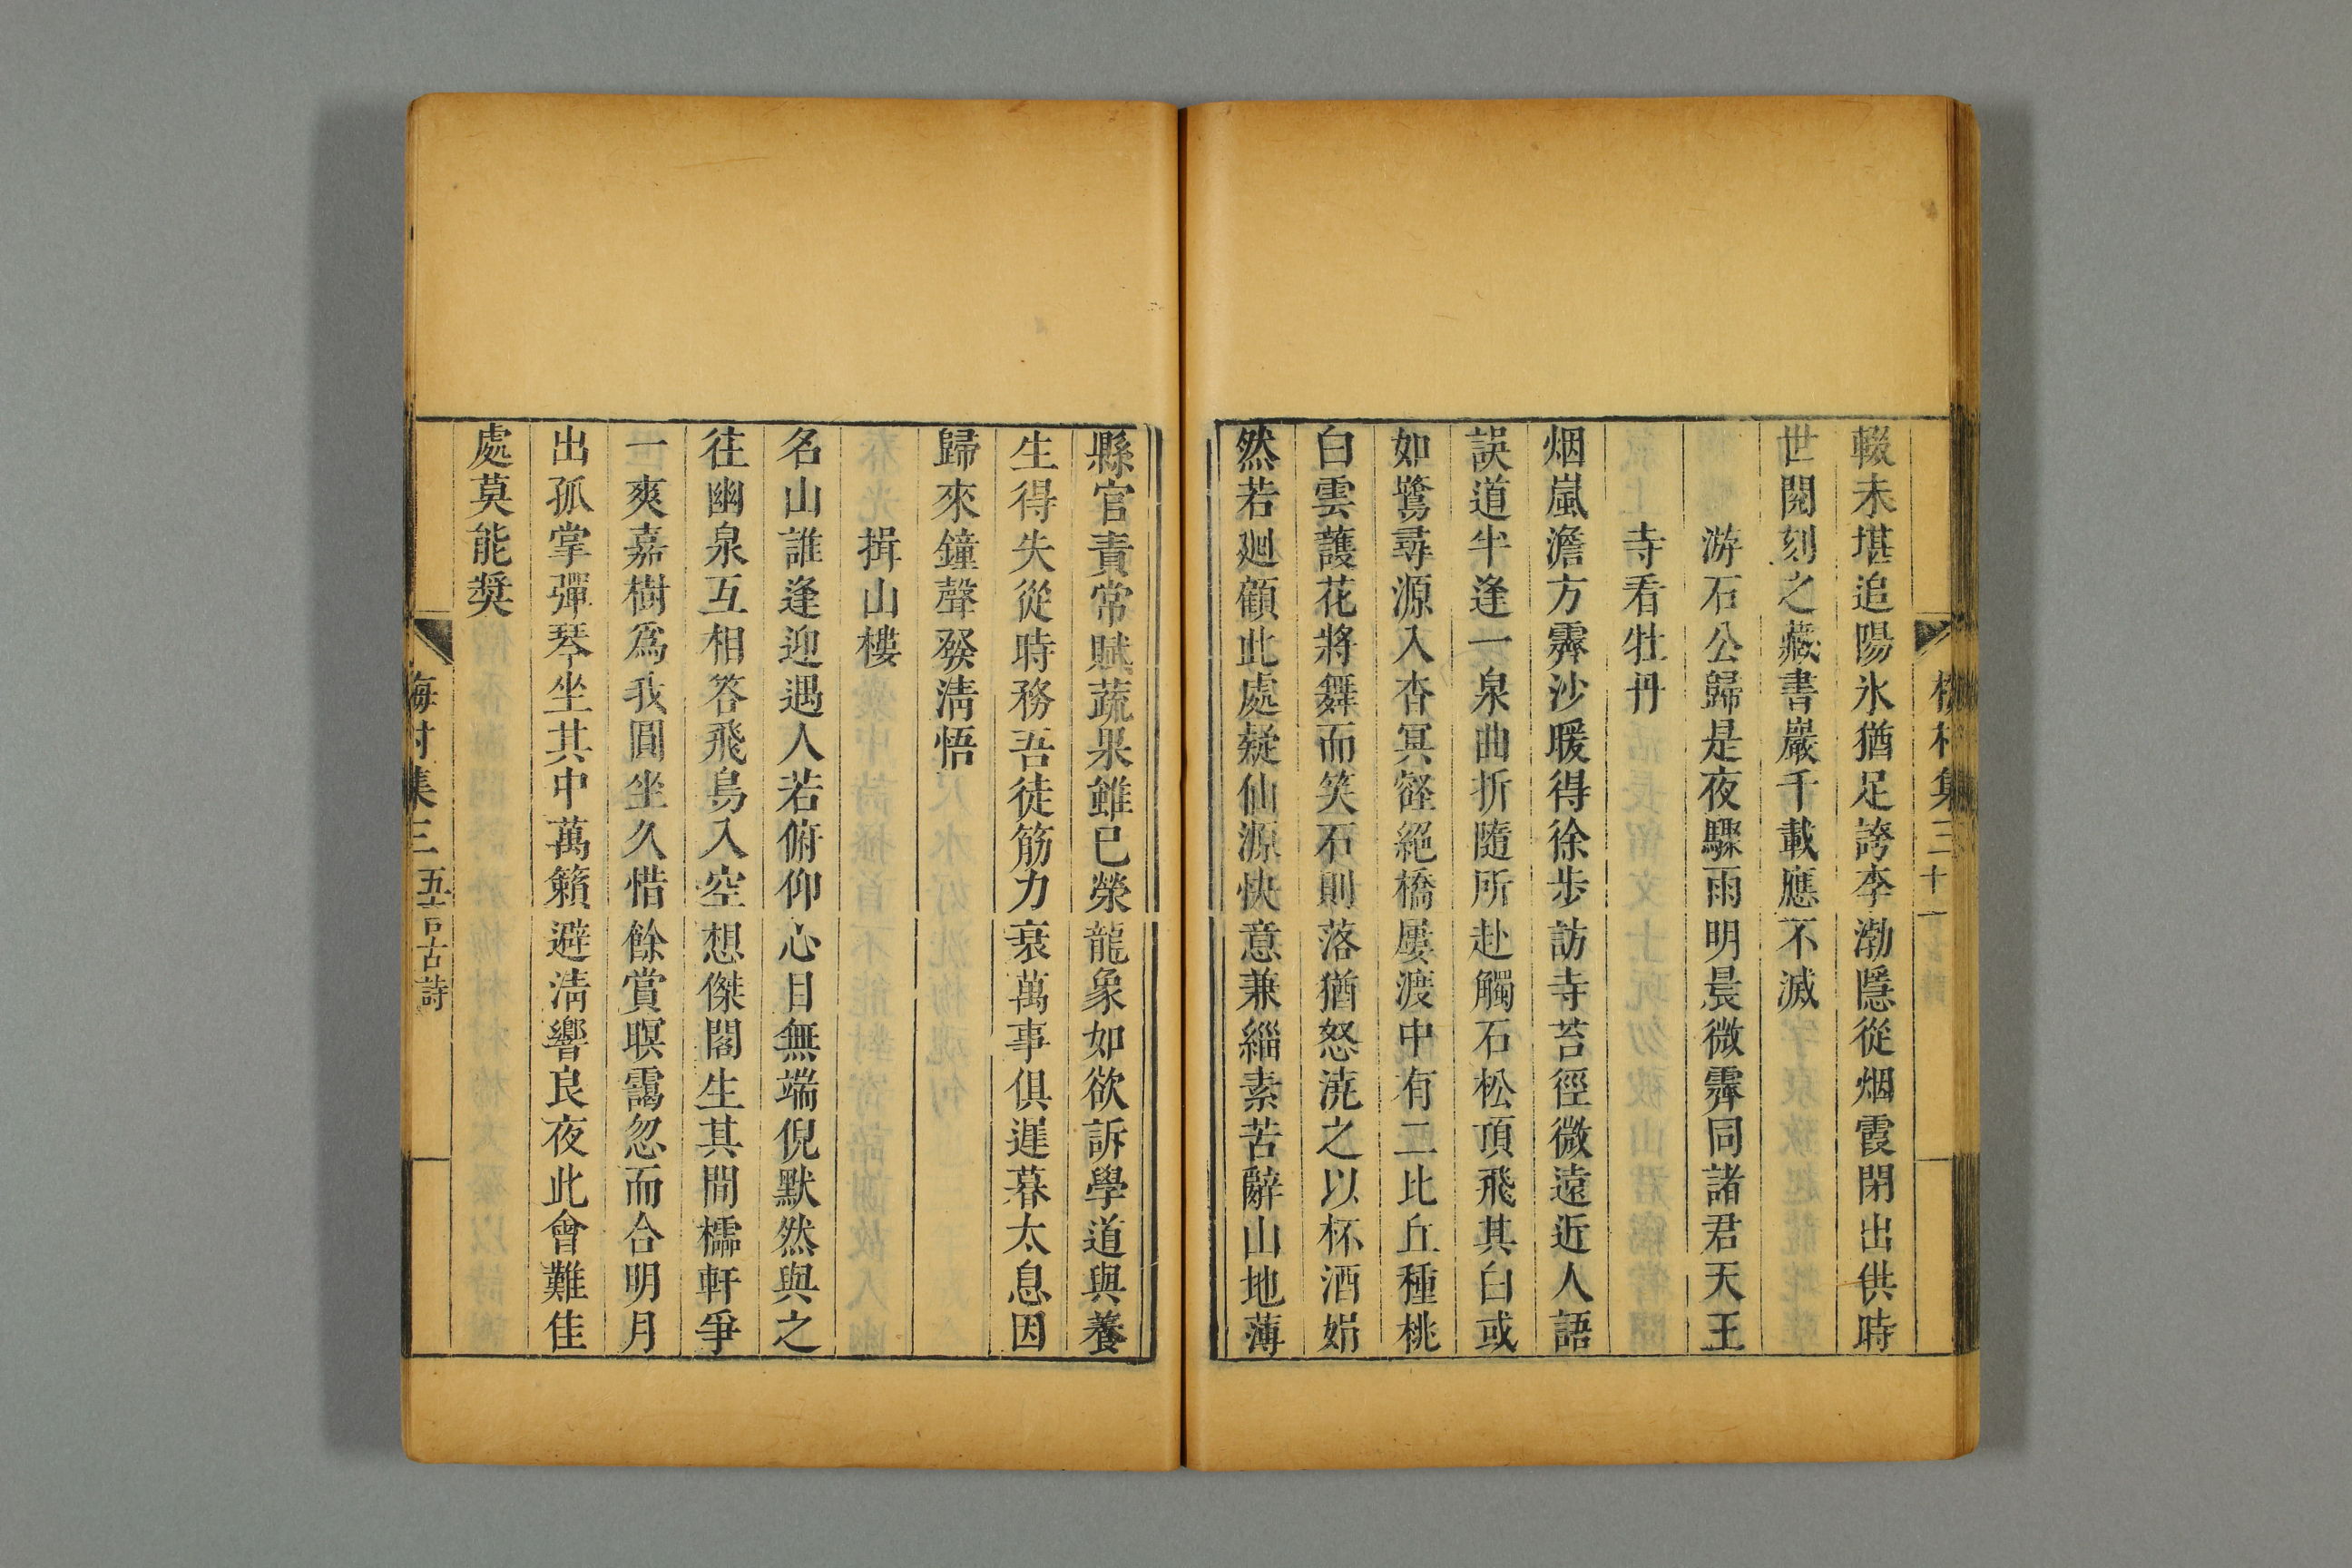 輟未堪追陽氷猶足誇李渤隱從烟霞閉出供時
世閱刻之藏書巖千載應不滅
游石公歸是夜驟雨明晨微霽同諸君天王
寺看牡丹
烟嵐澹方霽沙暖得徐步訪寺苔徑微遠近人語
誤道半逢一泉曲折隨所赴觸石松頂飛其白或
如鷺尋源入杳冥壑絕橋屢渡中有二比丘種桃
白雲護花將舞而笑石則落猶怒澆之以杯酒娟
然若廻顧此處疑仙源快意兼緇素苦辭山地薄
縣官責常賦蔬果雖已榮龍象如欲訴學道與養
生得失從時務吾徒筋力衰萬事俱遲暮太息因
歸來鐘聲發清悟
揖山樓
名山誰逢迎遇人若俯仰心目無端倪默然與之
往幽泉互相答飛鳥入空想傑閣生其間櫺軒爭
一爽嘉樹爲我圓坐久惜餘賞暝靄忽而合明月
出孤掌彈琴坐其中萬籟避清響良夜此會難佳
處莫能獎
梅村集三 五言古詩